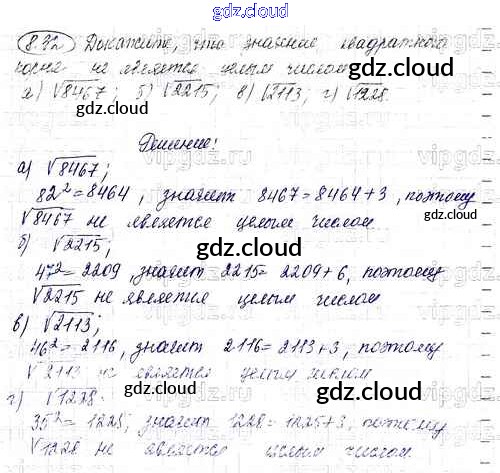 gdz.cloud
8.32 Докажите, что значение квадратного
корня не является целым числом
а) √8467; б) √2215; в) √2113; г) √1228.
gdz.cloud
gdz.cloud
Решение!
а) √8467;
gdz.cloud
82² = 8464, значит 8467 = 8464 + 3, поэтому
√8467 не является целым числом
gdz.cloud
б) √2215;
gdz.cloud
47² = 2209, значит 2215 = 2209 + 6, поэтому
√2215 не является целым числом
в) √2113;
gdz.cloud
46² = 2116, значит 2116 = 2113 + 3, поэтому
√2113 не является целым числом
gdz.cloud
г) √1228
35² = 1225; значит 1228 = 1225 + 3, поэтому
√1228 не является целым числом.
gdz.cloud